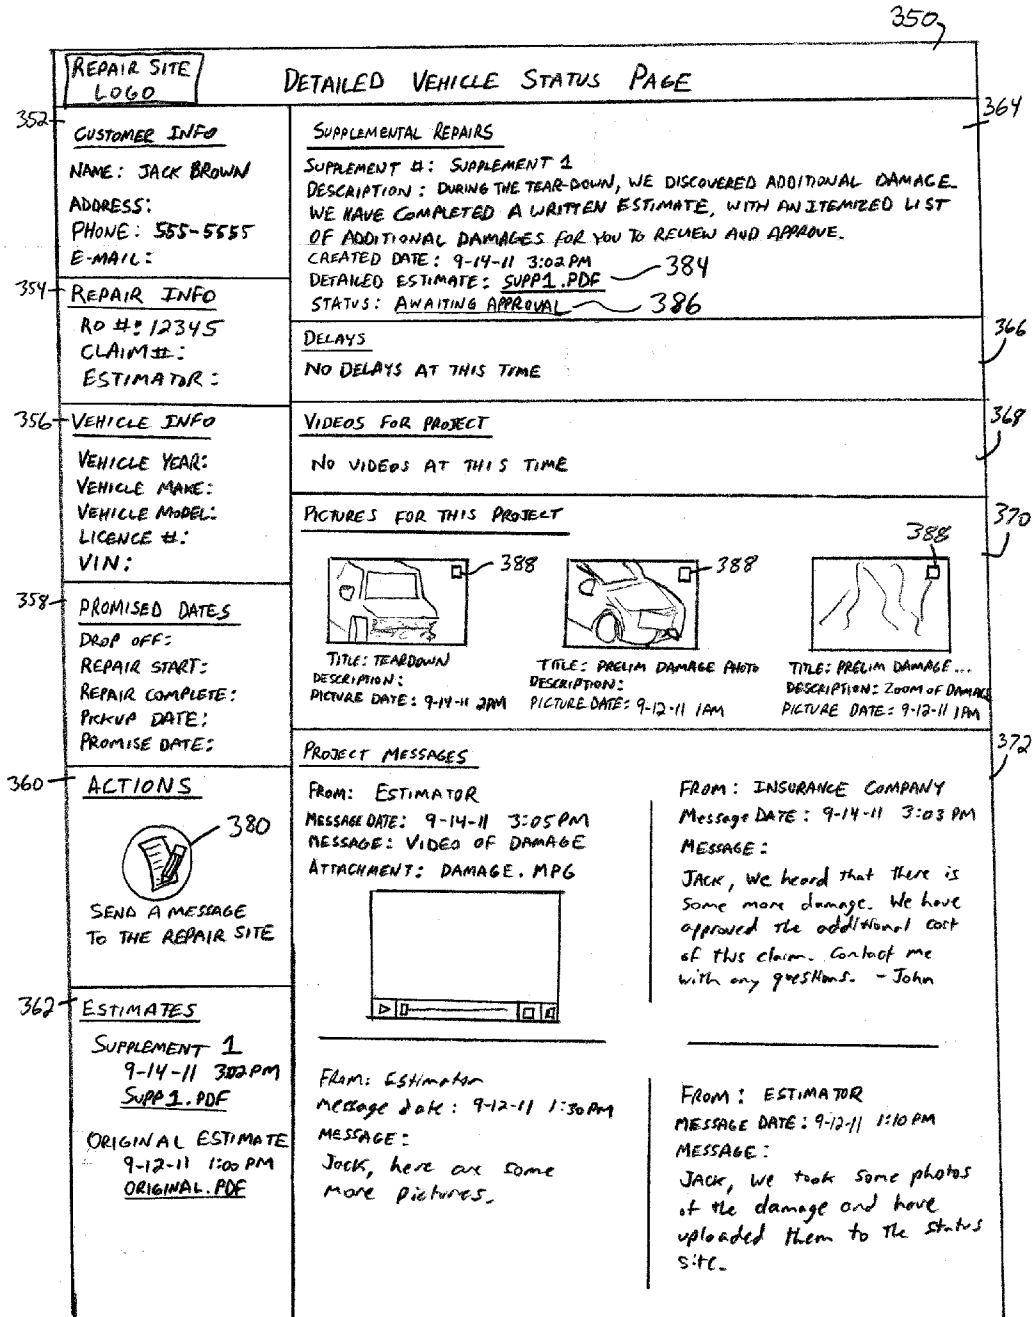 350
REPAIR SITE
LOGO
DETAILED VEHICLE STATUS PAGE
352
CUSTOMER INFO
NAME: JACK BROWN
ADDRESS:
PHONE: 555-5555
E-MAIL:
354
REPAIR INFO
RO #: 12345
CLAIM #:
ESTIMATOR:
356
VEHICLE INFO
VEHICLE YEAR:
VEHICLE MAKE:
VEHICLE MODEL:
LICENCE #:
VIN:
358
PROMISED DATES
DROP OFF:
REPAIR START:
REPAIR COMPLETE:
PICKUP DATE:
PROMISE DATE:
360
ACTIONS
380
SEND A MESSAGE
TO THE REPAIR SITE
362
ESTIMATES
SUPPLEMENT 1
9-14-11 3:02 PM
SUPP1.PDF
ORIGINAL ESTIMATE
9-12-11 1:00 PM
ORIGINAL.PDF
364
SUPPLEMENTAL REPAIRS
SUPPLEMENT #: SUPPLEMENT 1
DESCRIPTION: DURING THE TEAR-DOWN, WE DISCOVERED ADDITIONAL DAMAGE.
WE HAVE COMPLETED A WRITTEN ESTIMATE, WITH AN ITEMIZED LIST
OF ADDITIONAL DAMAGES FOR YOU TO REVIEW AND APPROVE.
CREATED DATE: 9-14-11 3:02 PM
DETAILED ESTIMATE: SUPP1.PDF 384
STATUS: AWAITING APPROVAL 386
366
DELAYS
NO DELAYS AT THIS TIME
368
VIDEOS FOR PROJECT
NO VIDEOS AT THIS TIME
370
PICTURES FOR THIS PROJECT
388
388
388
TITLE: TEARDOWN
DESCRIPTION:
PICTURE DATE: 9-14-11 2PM
TITLE: PRELIM DAMAGE PHOTO
DESCRIPTION:
PICTURE DATE: 9-12-11 1AM
TITLE: PRELIM DAMAGE...
DESCRIPTION: ZOOM OF DAMAGE
PICTURE DATE: 9-12-11 1PM
372
PROJECT MESSAGES
FROM: ESTIMATOR
MESSAGE DATE: 9-14-11 3:05 PM
MESSAGE: VIDEO OF DAMAGE
ATTACHMENT: DAMAGE.MPG
FROM: INSURANCE COMPANY
Message DATE: 9-14-11 3:03 PM
MESSAGE:
JACK, we heard that there is
some more damage. We have
approved the additional cost
of this claim. Contact me
with any questions. - John
From: Estimator
Message date: 9-12-11 1:30 PM
MESSAGE:
Jack, here are some
more pictures.
FROM: ESTIMATOR
MESSAGE DATE: 9-12-11 1:10 PM
MESSAGE:
JACK, we took some photos
of the damage and have
uploaded them to the status
site.